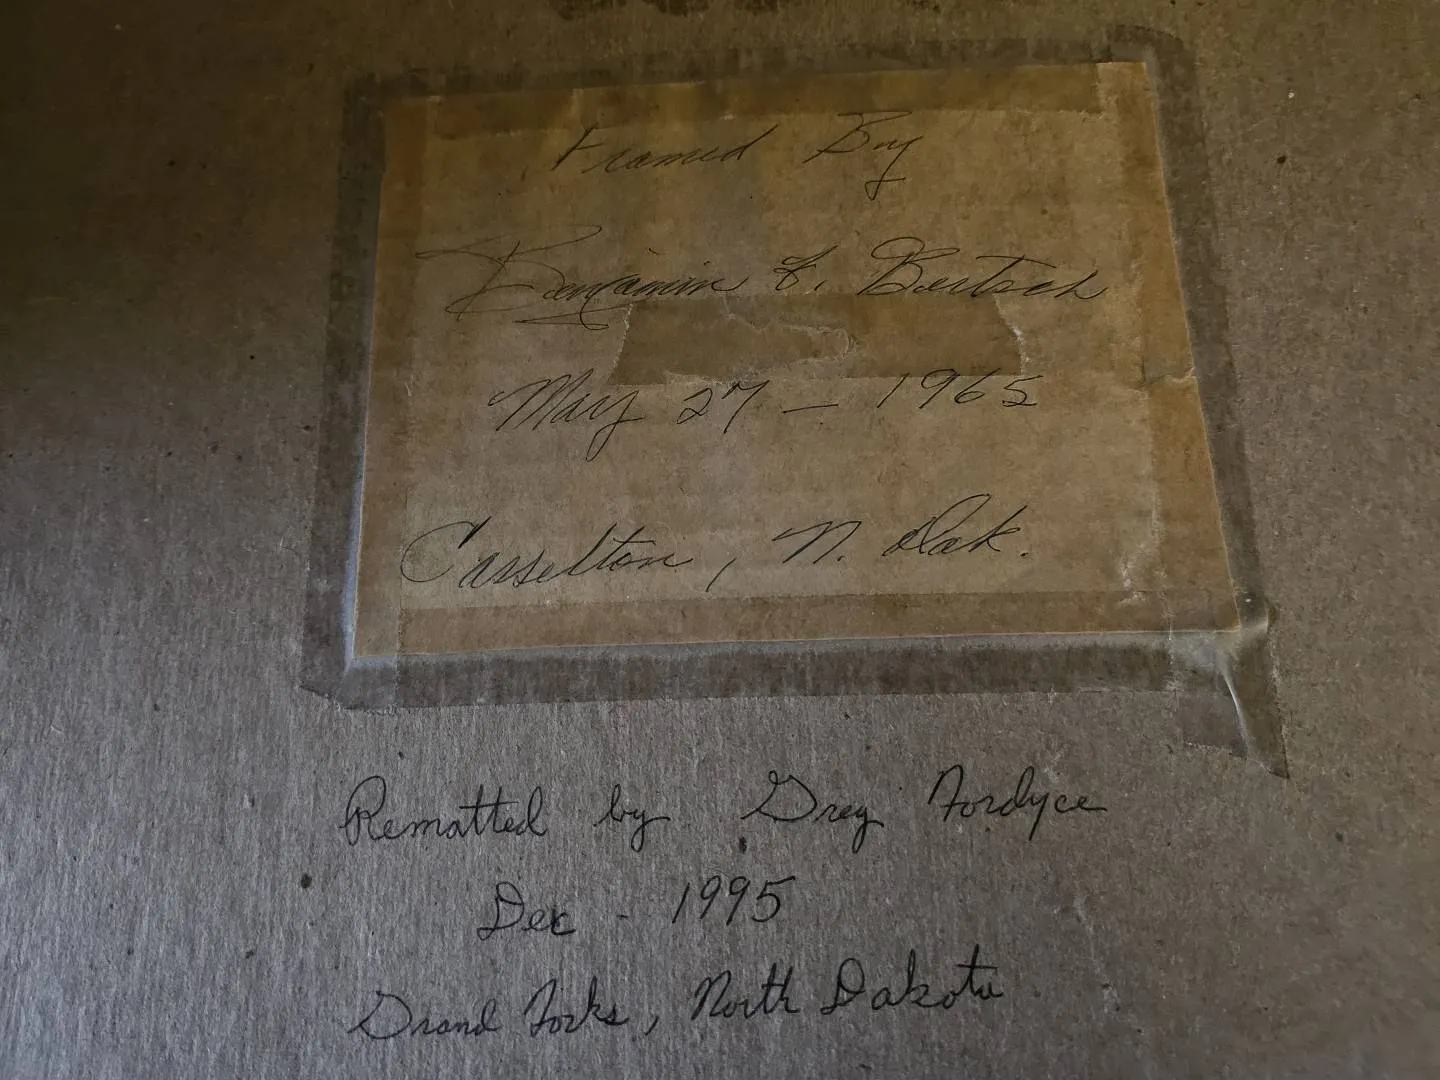 Framed By
Benjamin F. Bertsch
May 27 — 1965
Casselton, N. Dak.
Rematted by Greg Fordyce
Dec - 1995
Grand Forks, North Dakota